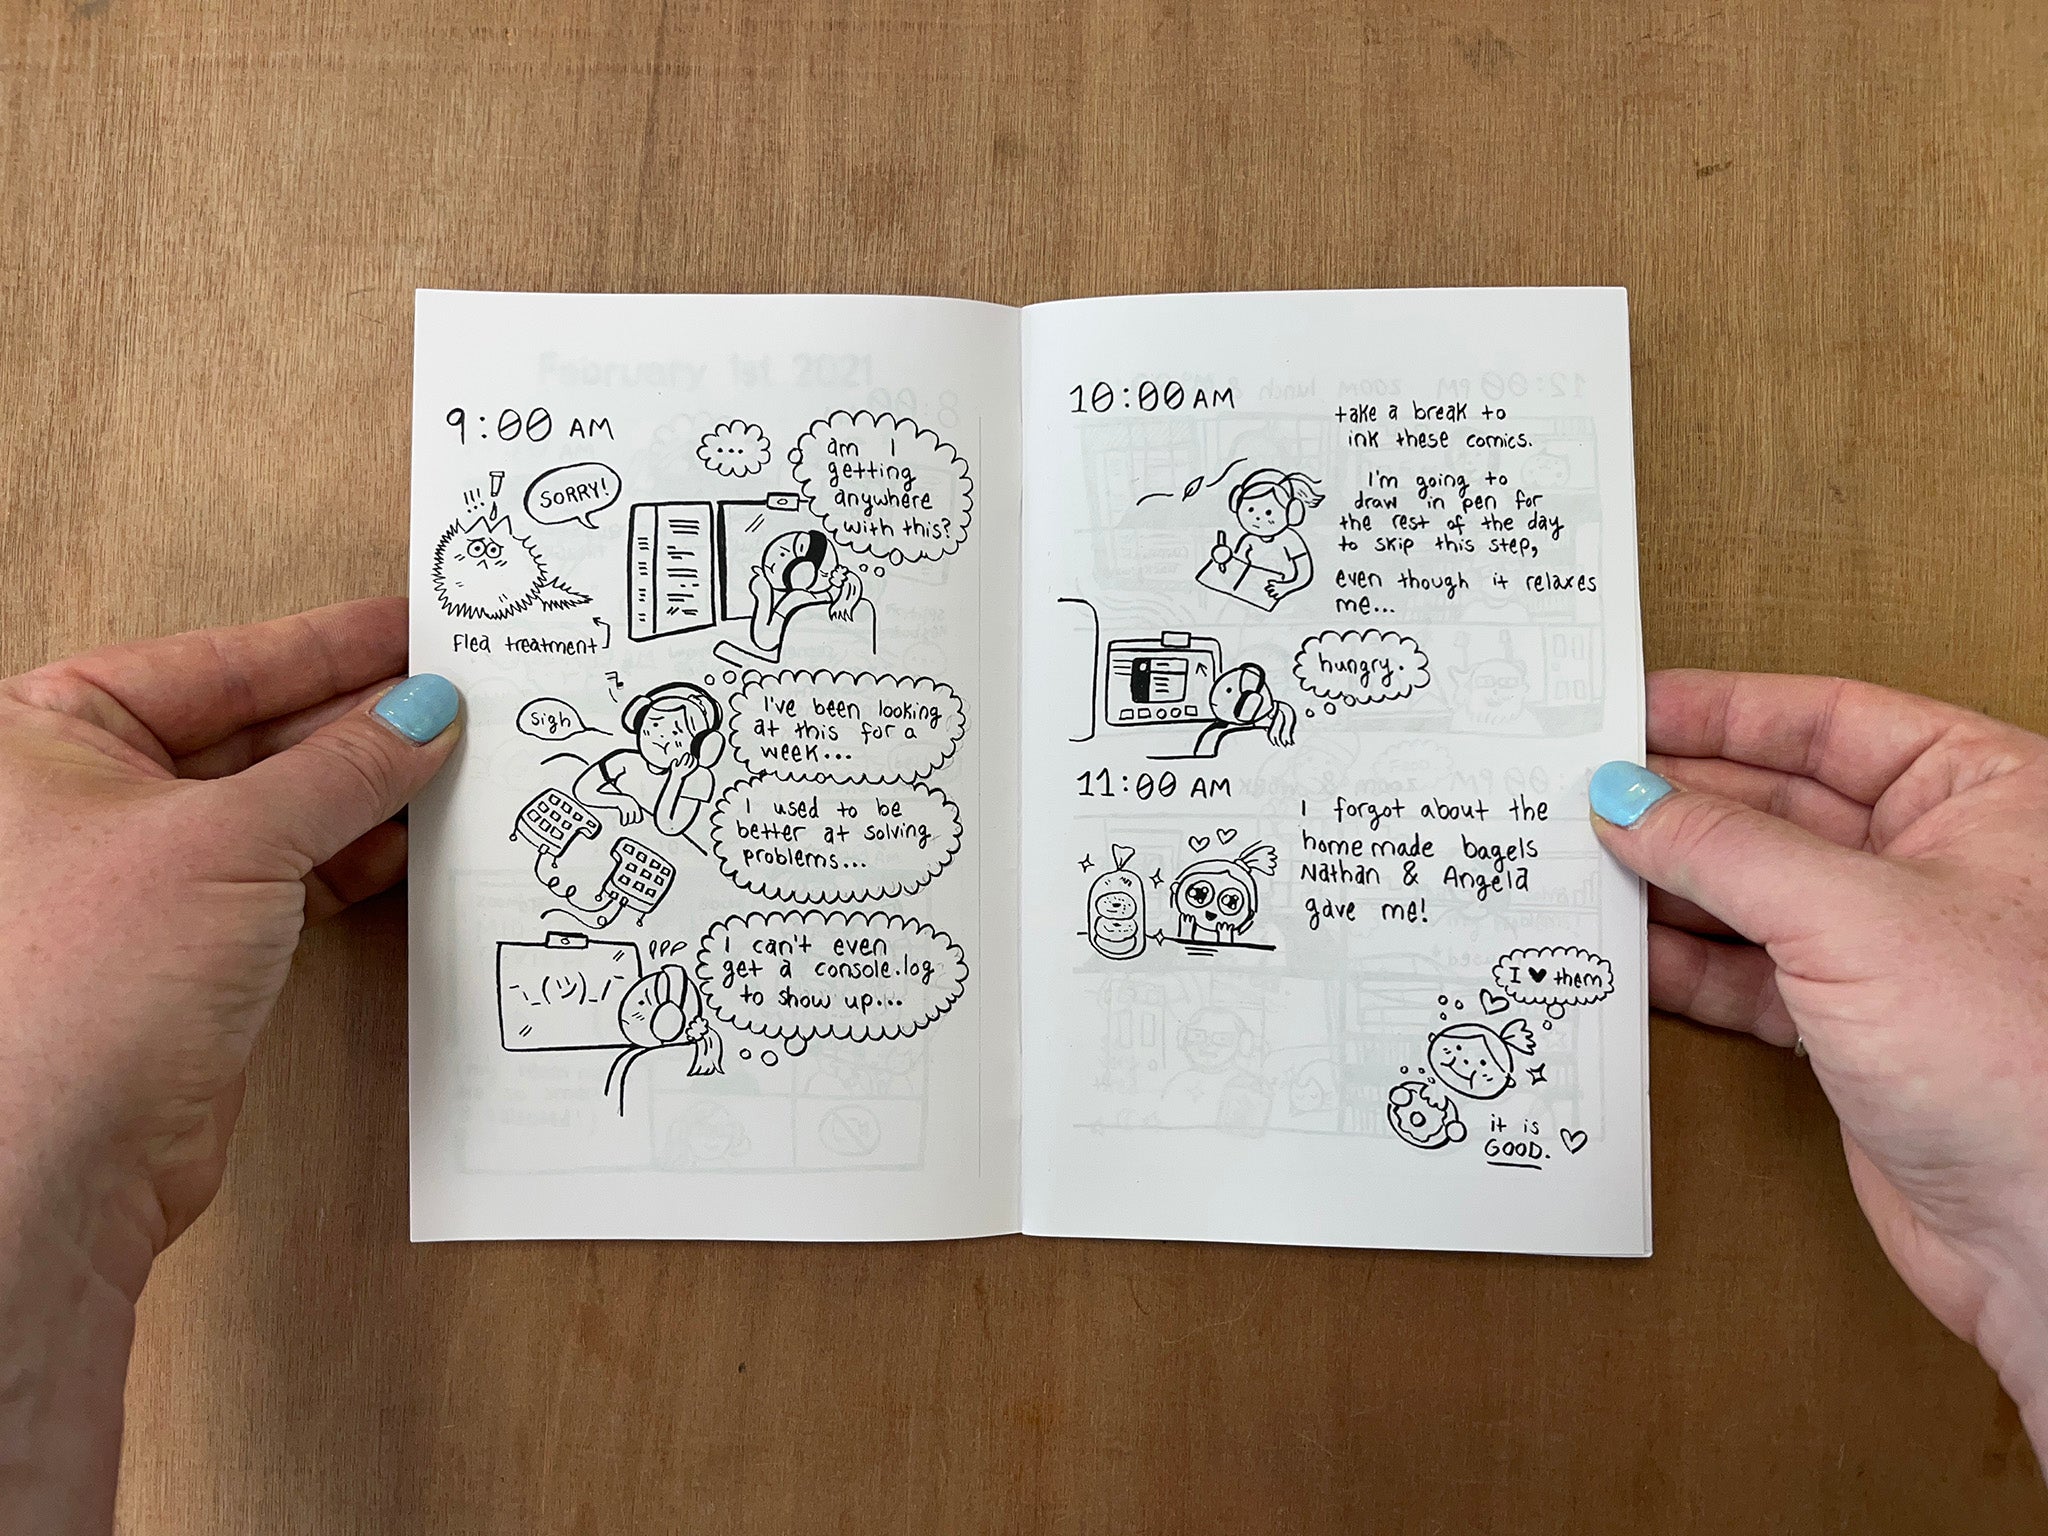 9:00 AM
!!!
SORRY!
Flea treatment
...
am I
getting
anywhere
with this?
sigh
I've been looking
at this for a
week...
I used to be
better at solving
problems...
I can't even
get a console.log
to show up...
¯\_(ツ)_/¯
10:00 AM
take a break to
ink these comics.
I'm going to
draw in pen for
the rest of the day
to skip this step,
even though it relaxes
me...
hungry.
11:00 AM
I forgot about the
homemade bagels
Nathan & Angela
gave me!
I ♥ them
it is
GOOD.
February 1st 2021
8:00
12:00 PM zoom lunch &